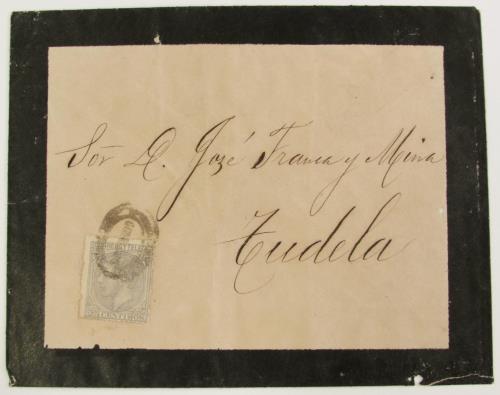 Sõr D. José Franca y Mina
Tudela
CENTIMOS